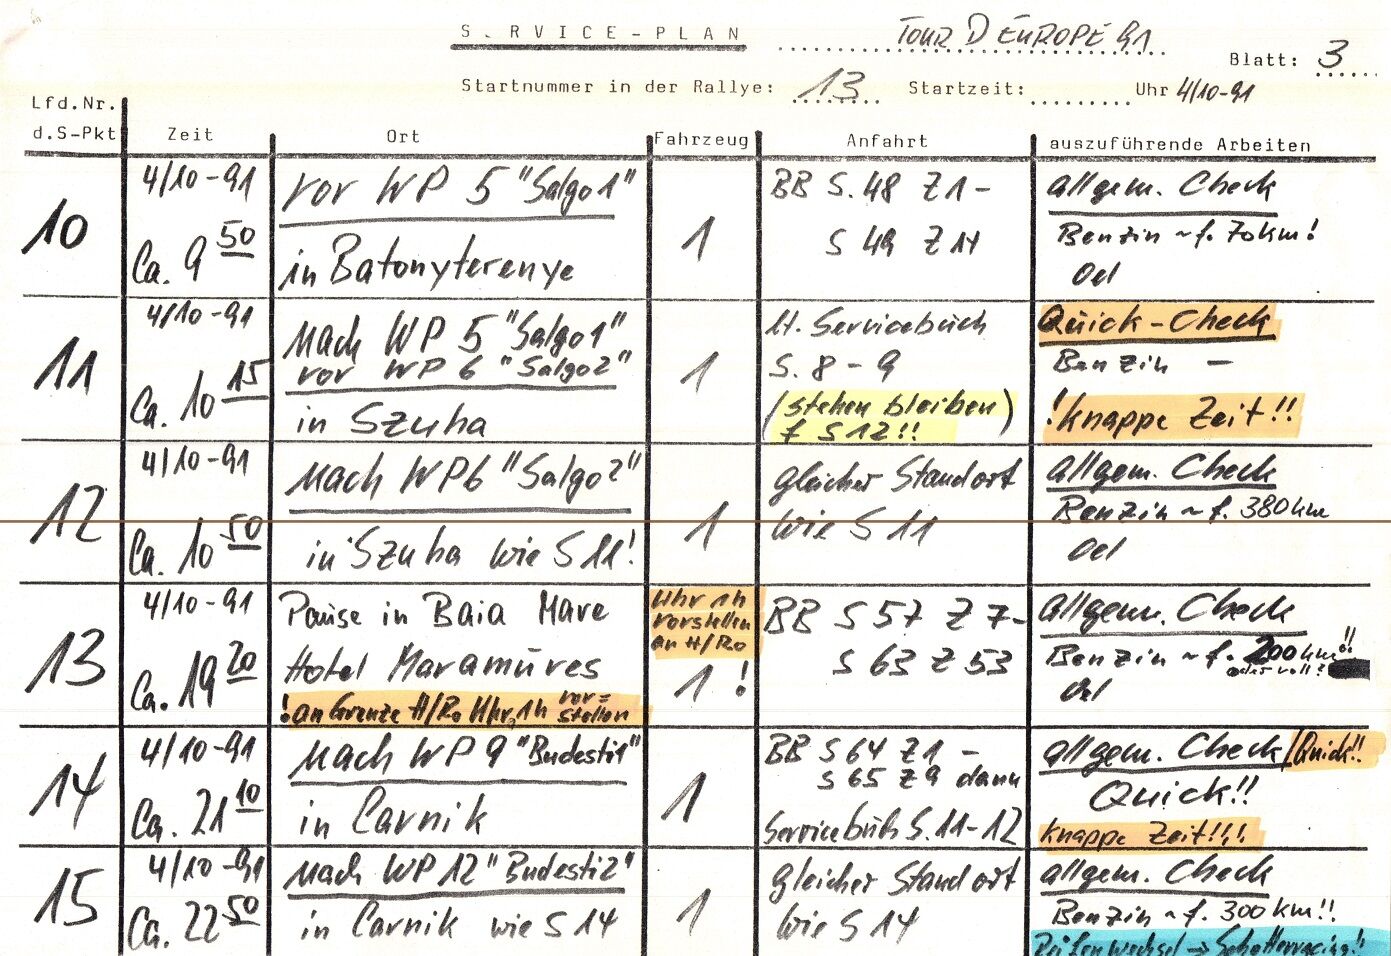 S.RVICE-PLAN TOUR D EUROPE 91
Blatt: 3
Startnummer in der Rallye: 13 Startzeit: Uhr 4/10-91
Lfd.Nr. d.S-Pkt Zeit Ort Fahrzeug Anfahrt auszuführende Arbeiten
10
4/10-91
Ca. 9 50
vor WP 5 "Salgo1"
in Batonyterenye
1
BB S. 48 Z 1-
S 49 Z 14
allgem. Check
Benzin ~ f. 70 km!
Oel
11
4/10-91
Ca. 10 15
nach WP 5 "Salgo1"
vor WP 6 "Salgo2"
in Szuha
1
lt. Servicebuch
S. 8-9
(stehen bleiben)
f S12!!
Quick-Check
Benzin -
!knappe Zeit!!
12
4/10-91
Ca. 10 50
nach WP6 "Salgo2"
in Szuha wie S11!
1
gleicher Standort
wie S 11
allgem. Check
Benzin ~ f. 380 km
Oel
13
4/10-91
Ca. 19 20
Pause in Baia Mare
Hotel Maramures
!an Grenze H/Ro Uhr 1h vor=
stellen
Uhr 1h
vorstellen
an H/Ro
1!
BB S 57 Z 7-
S 63 Z 53
allgem. Check
Benzin ~ f. 200 km!!
oder voll?
Oel
14
4/10-91
Ca. 21 10
nach WP 9 "Budesti1"
in Carnik
1
BB S 64 Z 1 -
S 65 Z 9 dann
Servicebuch S. 11-12
allgem. Check/Quick!!
Quick!!
knappe Zeit!!!
15
4/10-91
Ca. 22 50
nach WP 12 "Budesti2"
in Carnik wie S 14
1
gleicher Standort
wie S 14
allgem. Check
Benzin ~ f. 300 km!!
Reifenwechsel → Schotterracing!